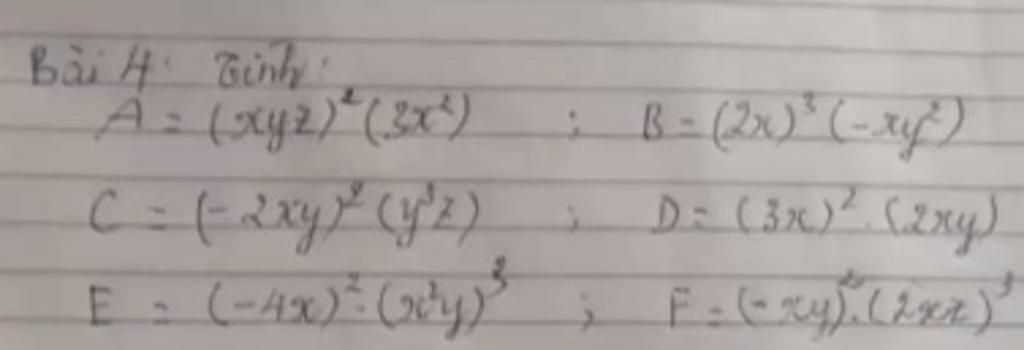 Bài 4: Tính:
A = (xyz)² (3x²) ; B = (2x)³ (-xy²)
C = (-2xy)² (y³z) ; D = (3x)² . (2xy)
E = (-4x)² . (x²y)³ ; F = (-xy)² . (2xz)³